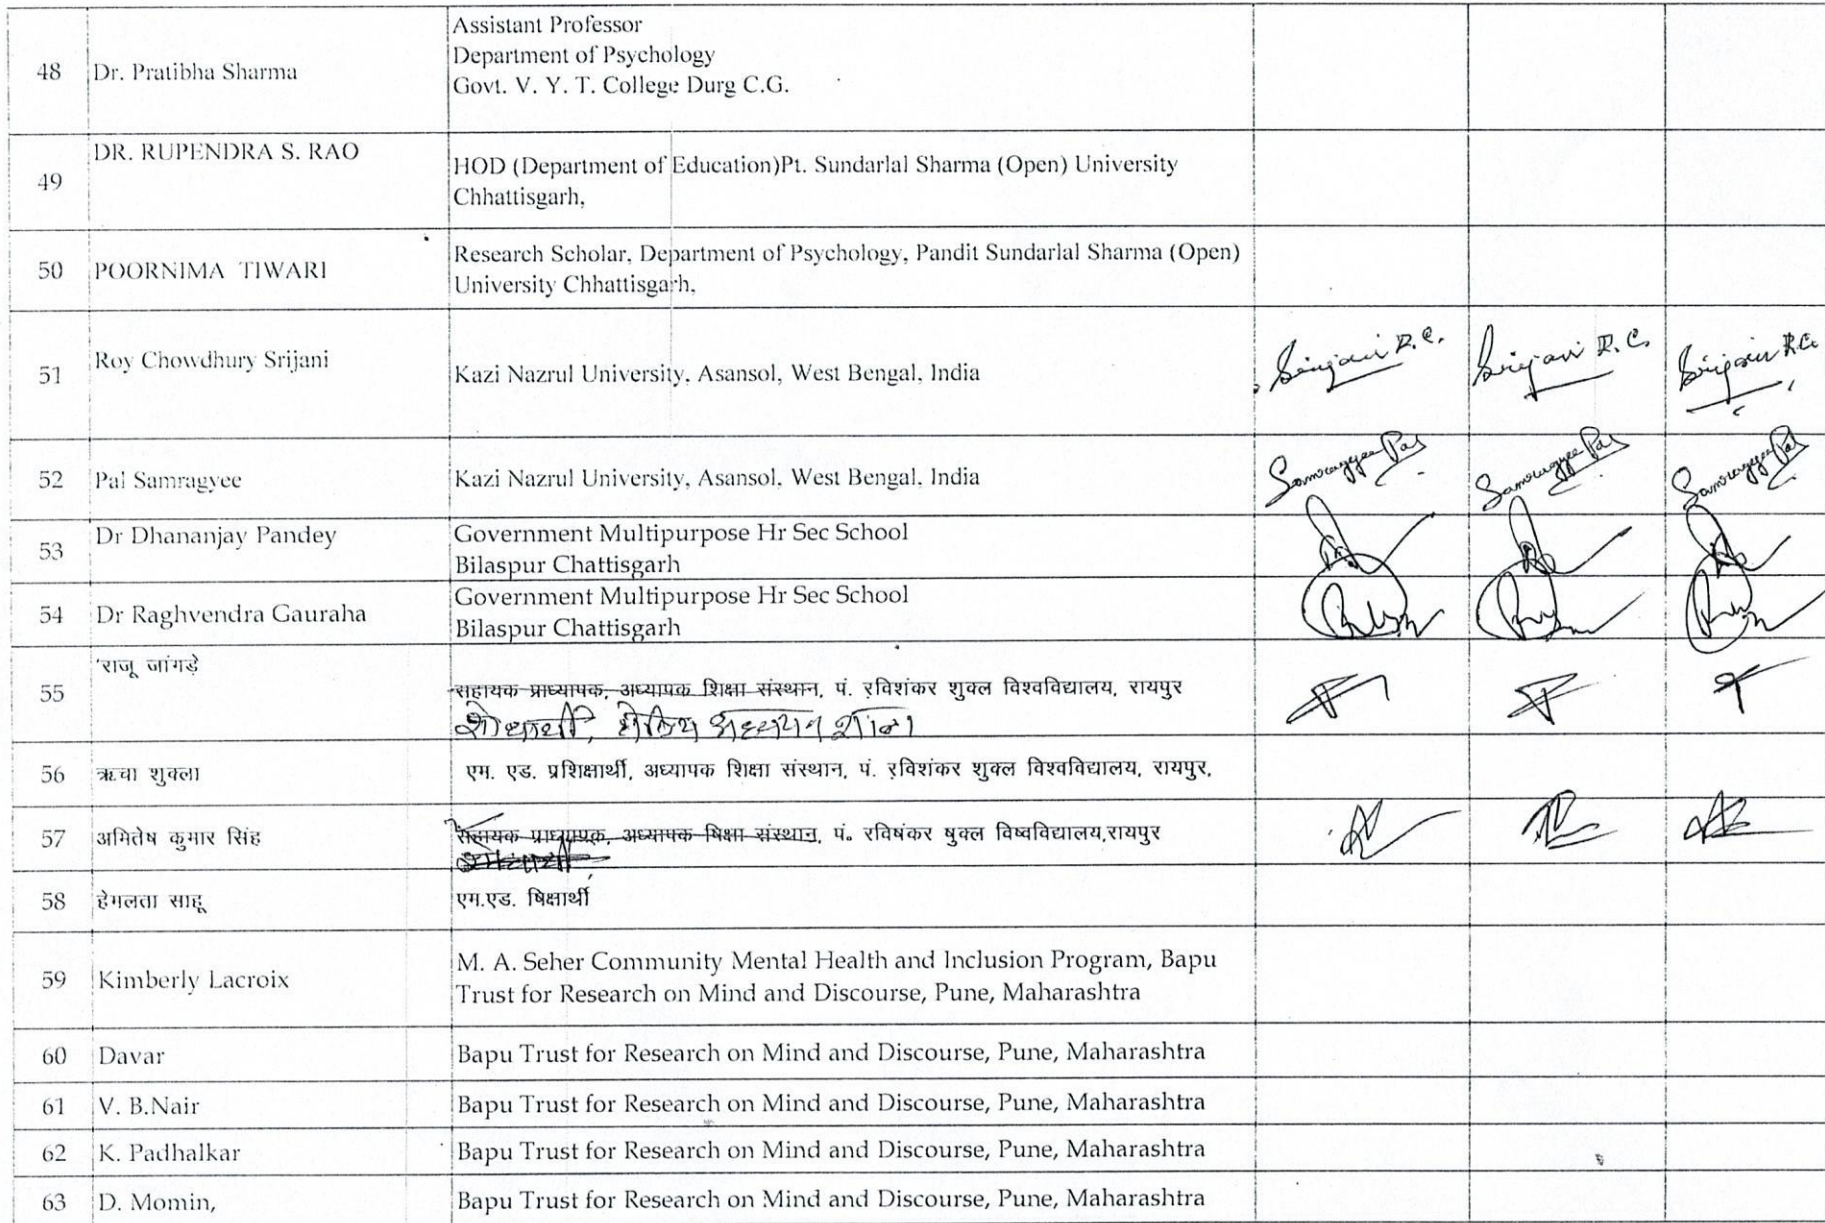 48 Dr. Pratibha Sharma
Assistant Professor
Department of Psychology
Govt. V. Y. T. College Durg C.G.
49 DR. RUPENDRA S. RAO
HOD (Department of Education)Pt. Sundarlal Sharma (Open) University
Chhattisgarh,
50 POORNIMA TIWARI
Research Scholar, Department of Psychology, Pandit Sundarlal Sharma (Open)
University Chhattisgarh,
51 Roy Chowdhury Srijani
Kazi Nazrul University, Asansol, West Bengal, India
Srijani R.C. Srijani R.C. Srijani R.C.
52 Pal Samragyee
Kazi Nazrul University, Asansol, West Bengal, India
Samragyee Pal Samragyee Pal Samragyee Pal
53 Dr Dhananjay Pandey
Government Multipurpose Hr Sec School
Bilaspur Chattisgarh
54 Dr Raghvendra Gauraha
Government Multipurpose Hr Sec School
Bilaspur Chattisgarh
55 'राजू जांगड़े
सहायक प्राध्यापक, अध्यापक शिक्षा संस्थान, पं. रविशंकर शुक्ल विश्वविद्यालय, रायपुर
शोधार्थी, अध्ययन शाला
56 ऋचा शुक्ला
एम. एड. प्रशिक्षार्थी, अध्यापक शिक्षा संस्थान, पं. रविशंकर शुक्ल विश्वविद्यालय, रायपुर,
57 अमितेष कुमार सिंह
सहायक प्राध्यापक, अध्यापक षिक्षा संस्थान, पं. रविषंकर षुक्ल विष्वविद्यालय,रायपुर
58 हेमलता साहू
एम.एड. षिक्षार्थी
59 Kimberly Lacroix
M. A. Seher Community Mental Health and Inclusion Program, Bapu
Trust for Research on Mind and Discourse, Pune, Maharashtra
60 Davar
Bapu Trust for Research on Mind and Discourse, Pune, Maharashtra
61 V. B.Nair
Bapu Trust for Research on Mind and Discourse, Pune, Maharashtra
62 K. Padhalkar
Bapu Trust for Research on Mind and Discourse, Pune, Maharashtra
63 D. Momin,
Bapu Trust for Research on Mind and Discourse, Pune, Maharashtra